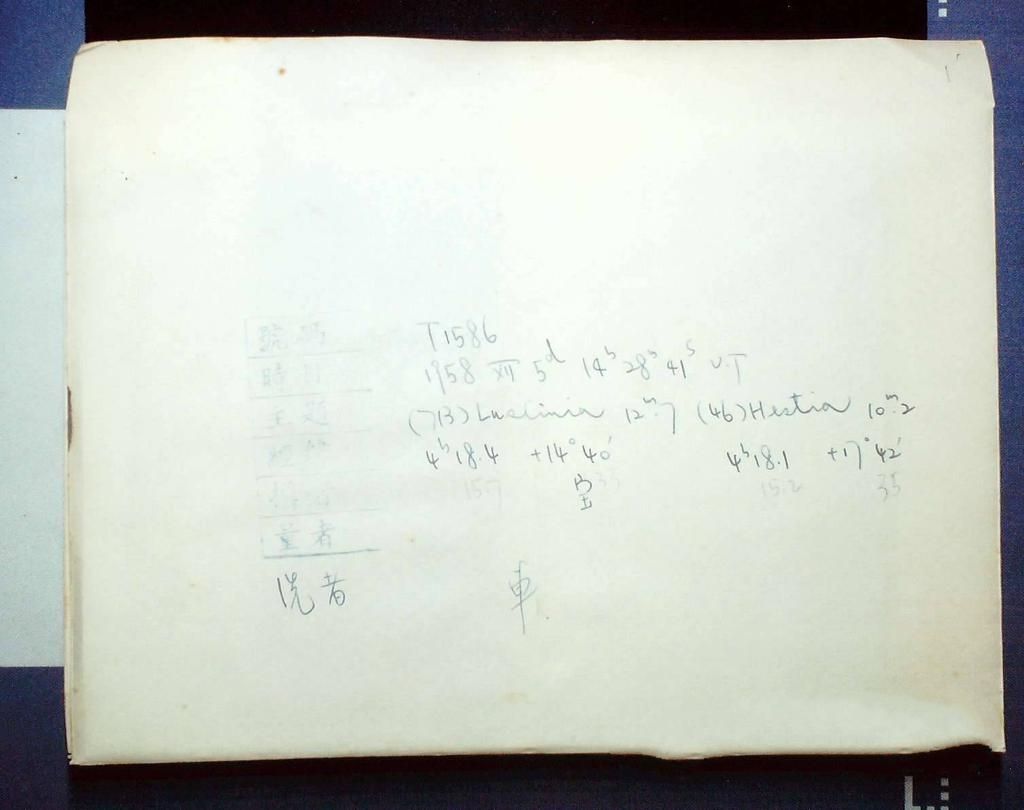 號碼 T1586
時刻 1958 XII 5d 14h 28m 41s U.T
主題 (713) Luscinia 12m.7 (46) Hestia 10m.2
4h18.4 +14°40' 4h18.1 +17°42'
15.7 35 15.2 35
量者
洗者 車